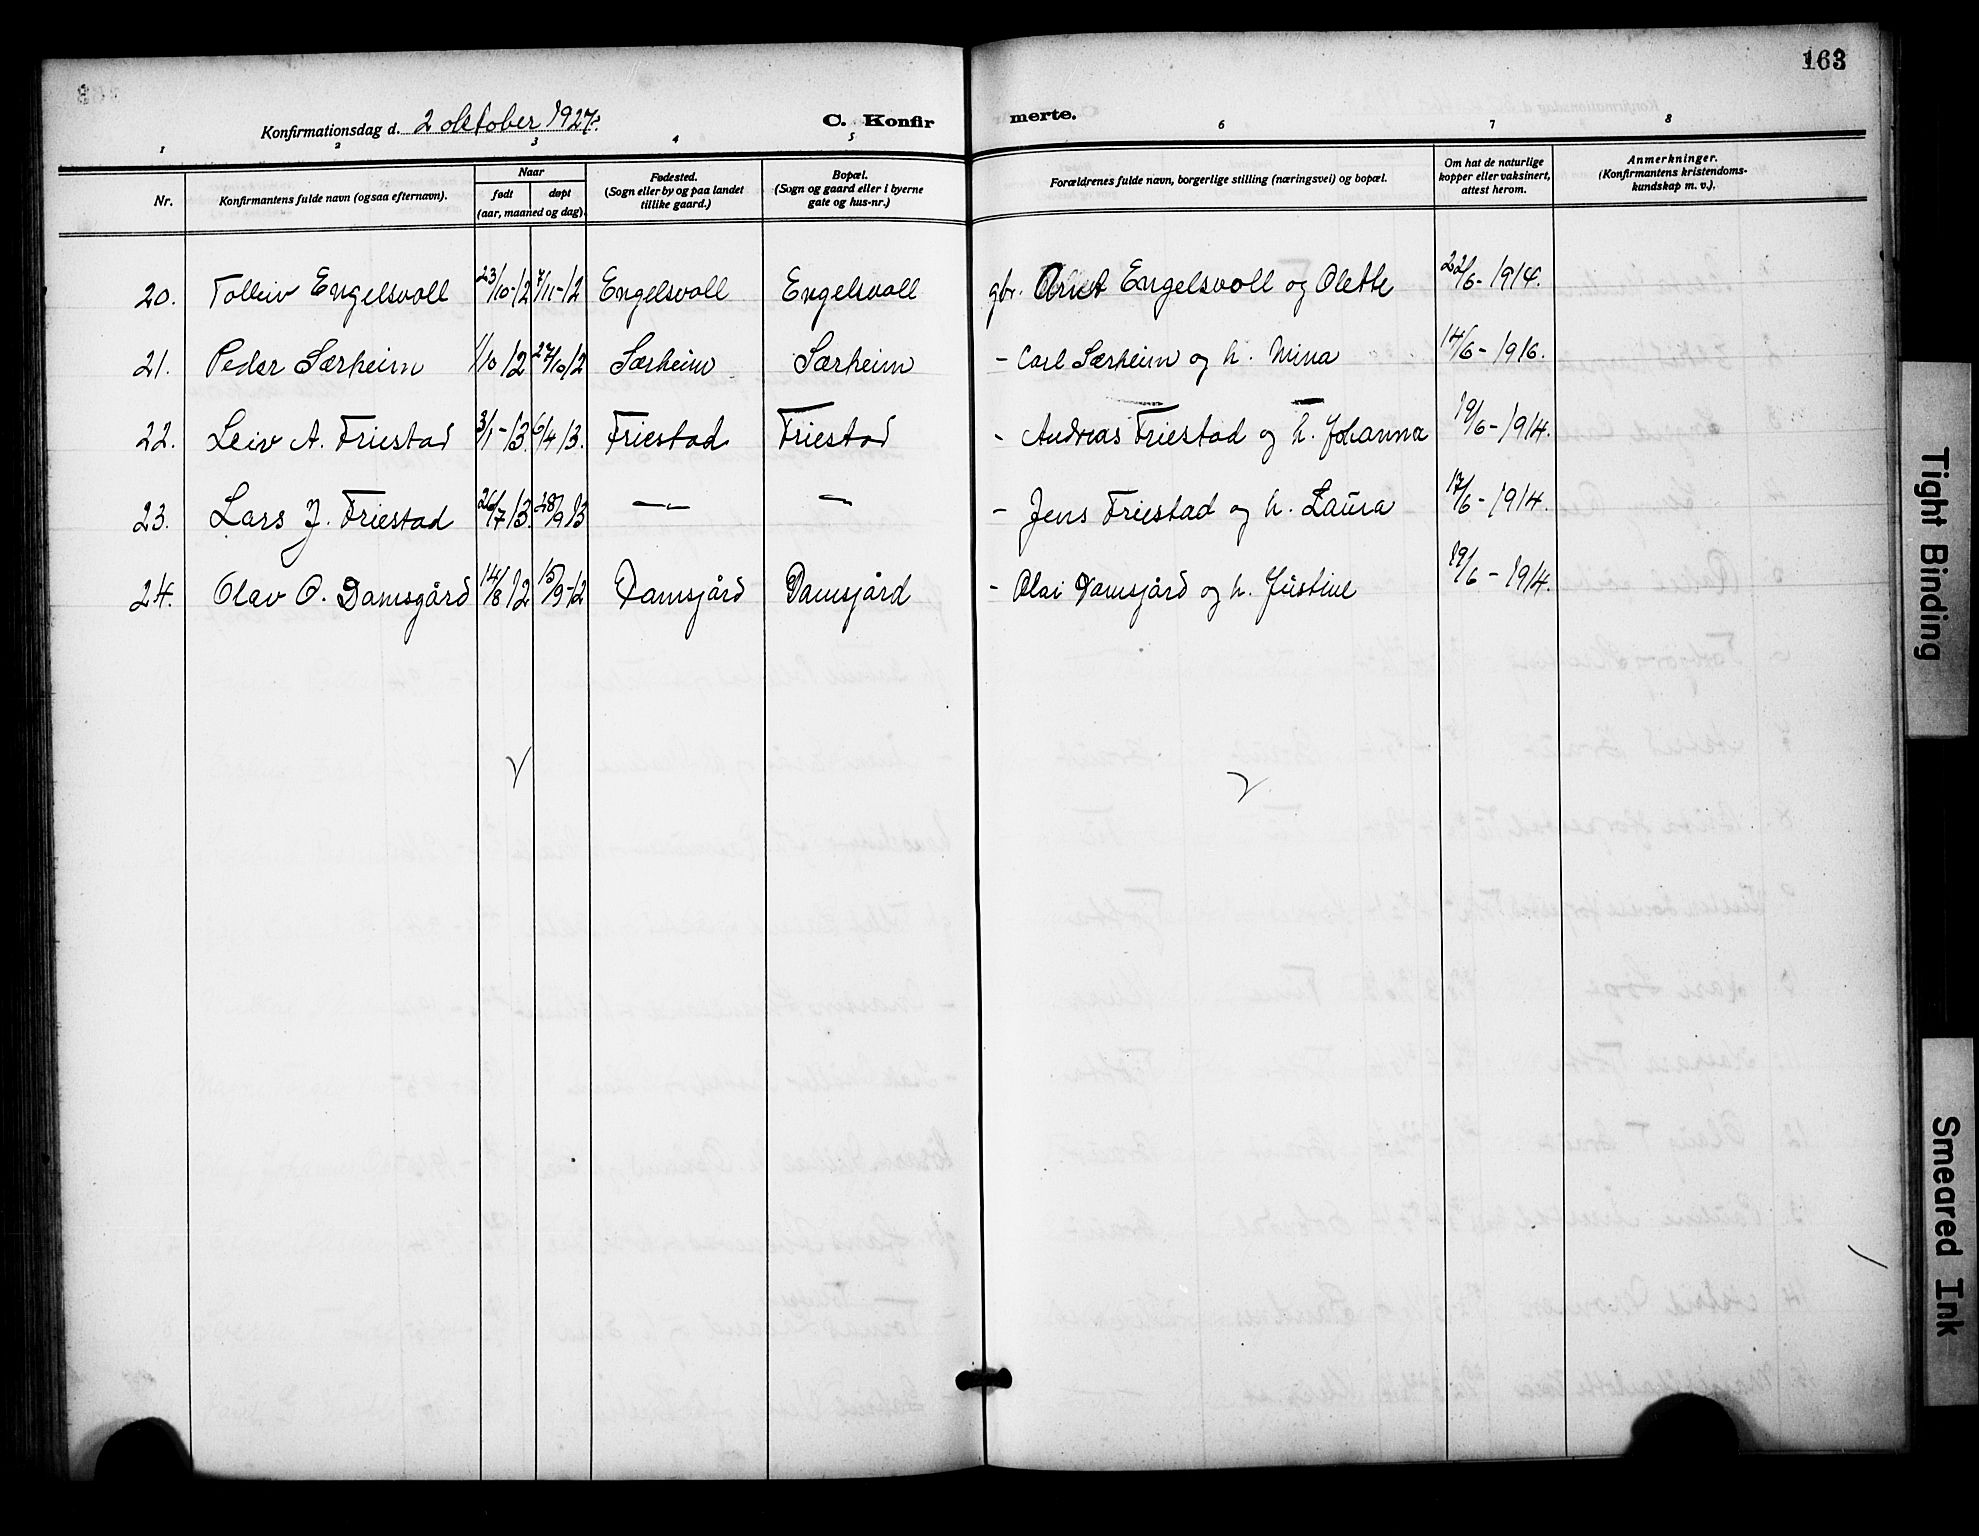 163
Konfirmationsdag d. 2 oktober 1927.
C. Konfir merte.
1 2 3 4 5 6 7 8
Nr.
Konfirmantens fulde navn (ogsaa efternavn).
Naar
født døpt
(aar, maaned og dag).
Fødested.
(Sogn eller by og paa landet
tillike gaard.)
Bopæl.
(Sogn og gaard eller i byerne
gate og hus-nr.)
Forældrenes fulde navn, borgerlige stilling (næringsvei) og bopæl.
Om hat de naturlige
kopper eller vaksinert,
attest herom.
Anmerkninger.
(Konfirmantens kristendoms-
kundskap m. v.).
20. Tolleiv Engelsvoll 23/10-12 7/11-12 Engelsvoll Engelsvoll gbr. Engelsvoll og Olette 22/6-1914.
21. Peder Særheim 1/10 12 27/10 12 Særheim Særheim - Carl Særheim og h. Mina 14/6-1916.
22. Leiv A. Friestad 3/1-13. 6/4 13. Friestad Friestad - Andreas Friestad og h. Johanna 19/6-1914.
23. Lars J. Friestad 26/7 13. 28/9 13 — — - Jens Friestad og h. Laura 17/6-1914.
24. Olav O. Damsgård 14/8 12 15/9-12 Damsjård Damsjård - Olai Damsjård og h. Justine 19/6-1914.
Tight Binding
Smeared Ink